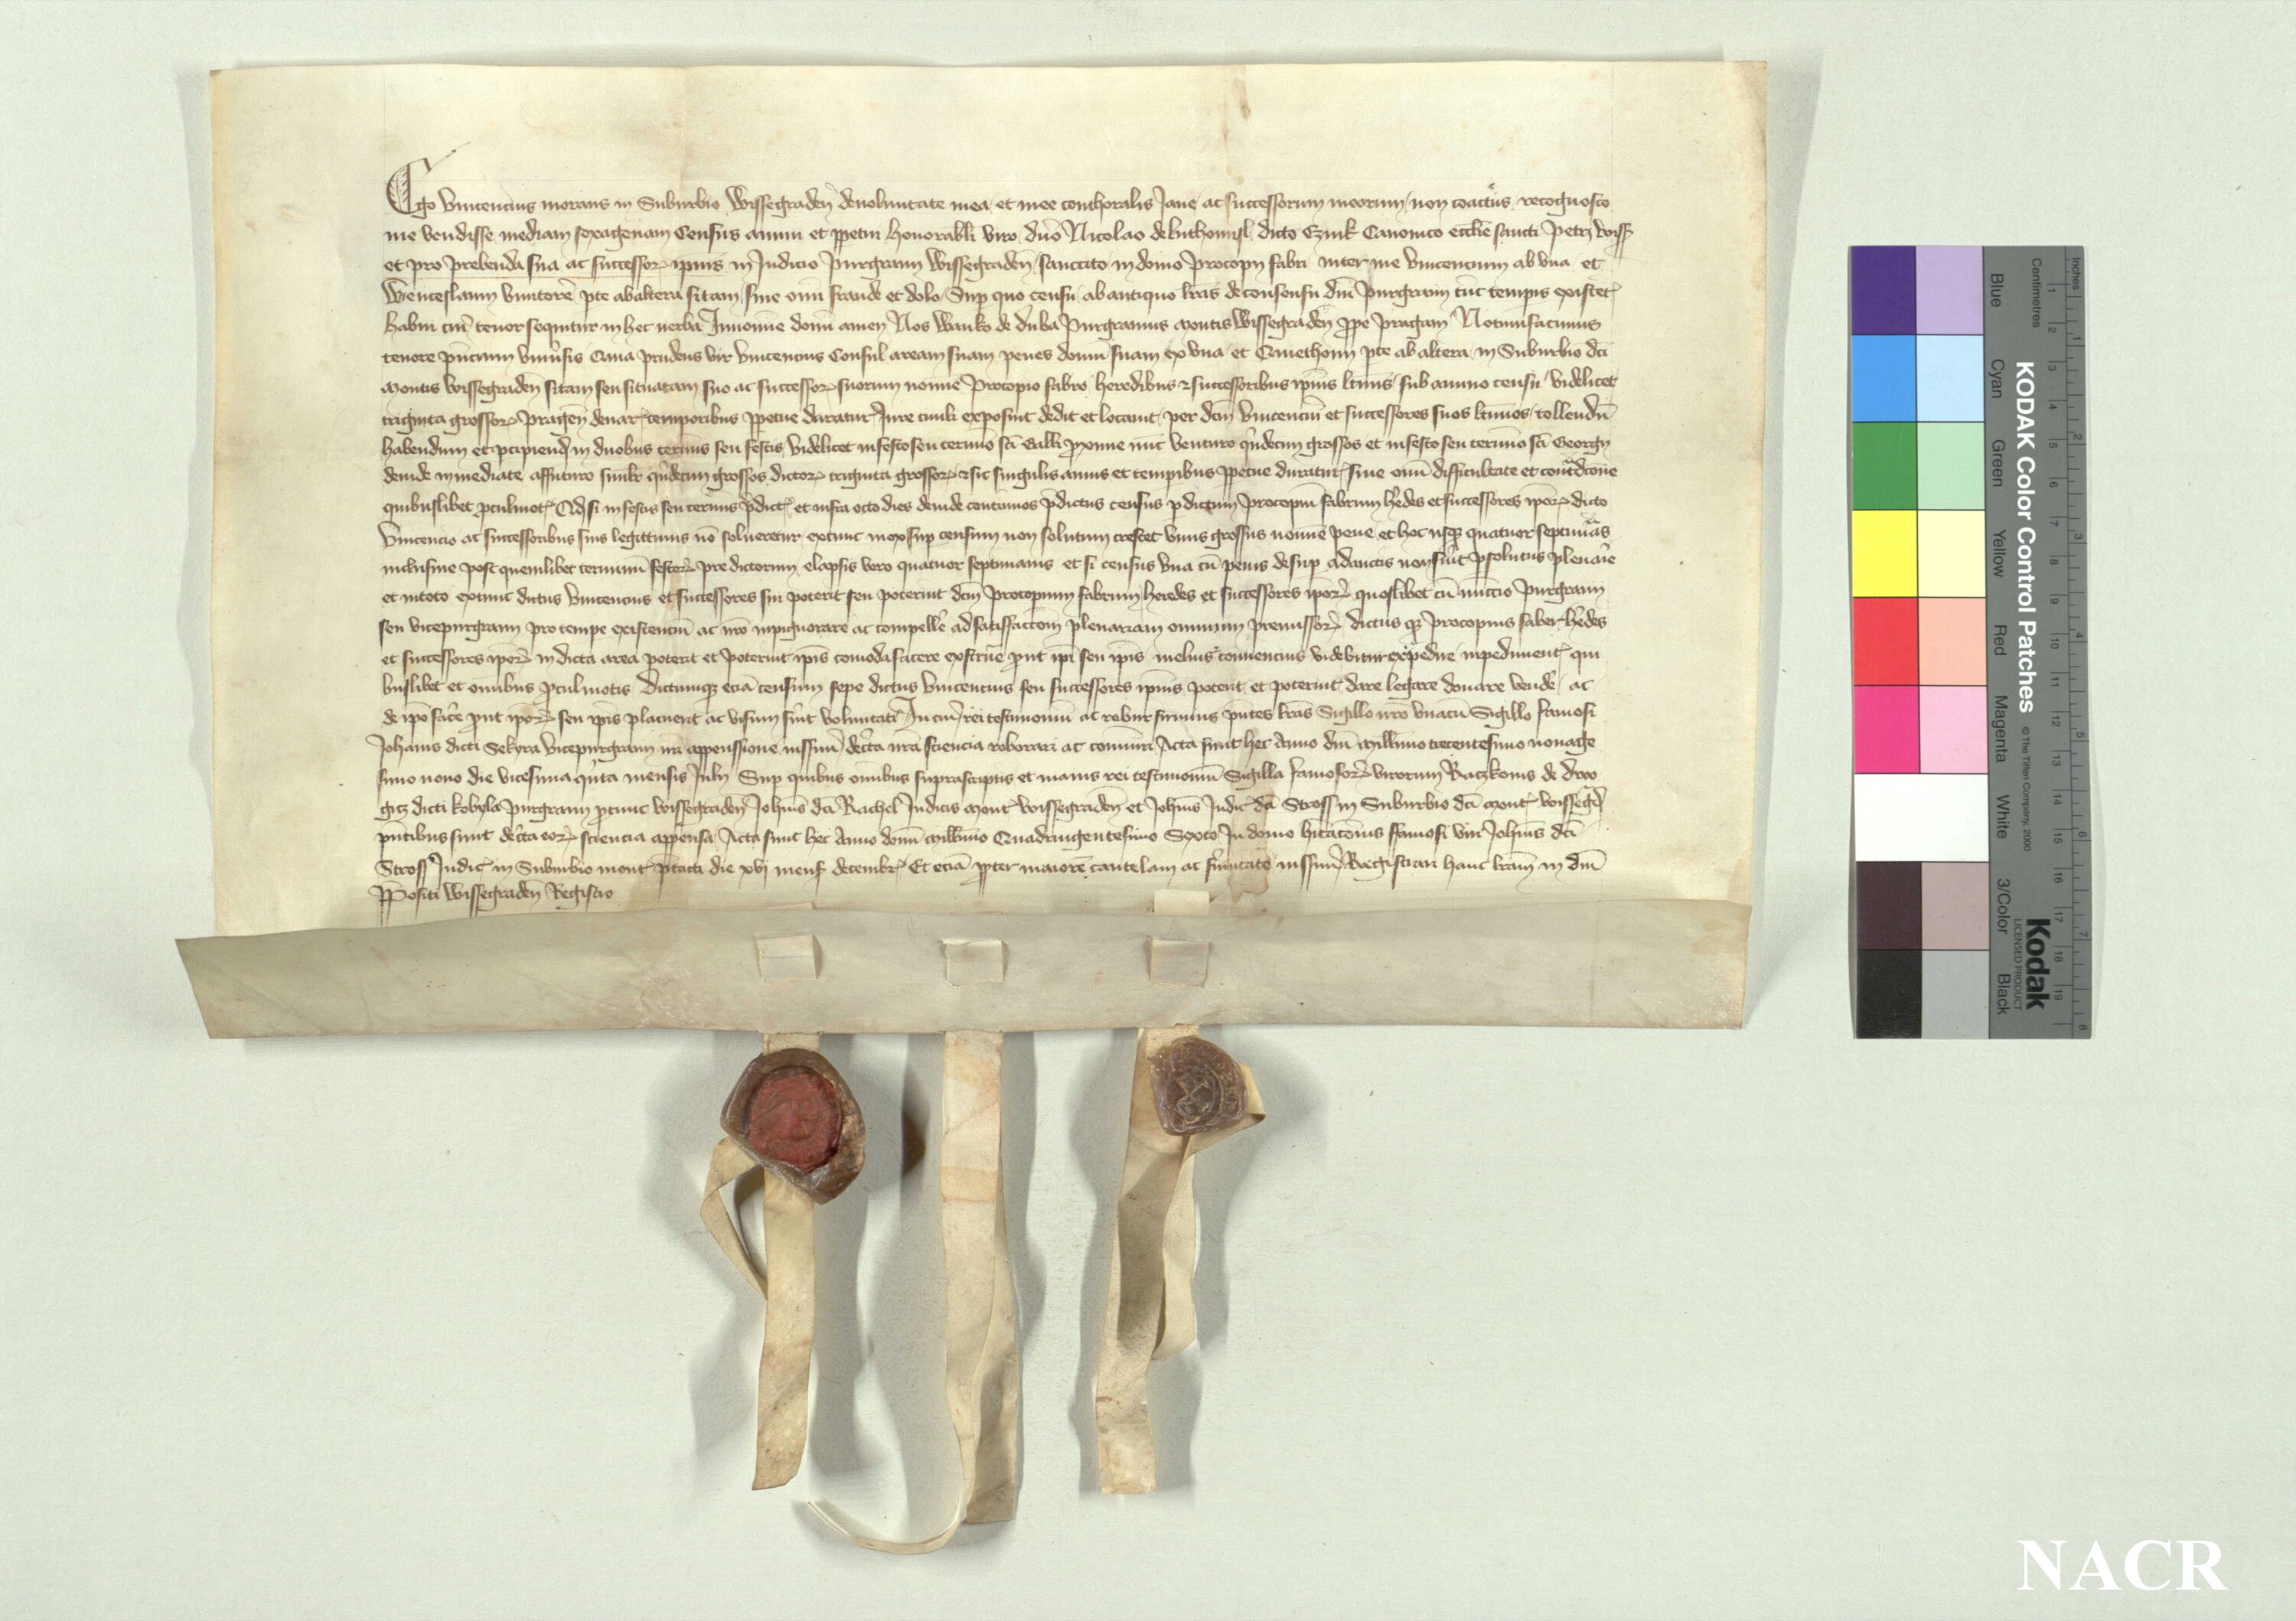 Ego Vincencius morans in Suburbio Wissegradeñ de voluntate mea et mee conthoralis Jane ac successorum meorum non coactus recognosco
me vendisse mediam sexagenam Census annui et ꝑpetui honorabili viro dño Nicolao de luthomisl dicto Czink Canonico ecclie sancti Petri Wiss
et pro prebenda sua ac successoꝝ ipius in Judicio Purgravii Wissegradeñ sanccito in domo Procopii fabri inter me Vincencium ab vna et
Wenceslaum pte ab altera sitam sine omi fraude et dolo Suꝑ quo censu ab antiquo lras de consensu dni Purgravii tunc tempis existeñ
habui cuiꝰ tenor sequitur in hec verba In nomine domi amen Nos Wanko de duba Purgravius montis Wissegradeñ ꝓpe Pragam Notum facimus
tenore pñcium vniusis Qm prudens vir Vincencius Consul aream suam penes domum suam ex vna et pte ab altera in Suburbio dci
montis Wissegradeñ sitam seu situatam suo ac successoꝝ suorum noie Procopio fabro heredibus et successoribus ipius ltimis sub annuo censu videlicet
triginta grossoꝝ Pragen denar temporibus ꝑpetue duratur Jure civili exposuit dedit et locavit per dcm Vincenciu et successores suos ltimos tollendu
habendum et ꝑcipiend in duobus terminis seu festis videlicet in festo seu termino sci Galli ꝓxime nuc venturo qndecim grossos et in festo seu termino sci Georgii
deinde inmediate affuturo simlr qndecim grossos dictoꝝ triginta grossoꝝ et sic singulis annis et tempibus ꝑpetue duratur sine omi difficultate et contdcone
quibuslibet ꝓculmot Qd si in festis seu terminis pdict et infra octo dies deinde continuos pdictus census ꝑ dictum Procopiu fabrum hedes et successores ipoꝝ dicto
Vincencio ac successoribus suis legittimis no solveretur extunc mox suꝑ censum non solutum crescet vnus grossus nomine pene et hoc usqꝫ quatuor septimas
inclusive post quemlibet terminu festoꝝ predictorum elapsis vero quatuor septimanis et si census vna cu penis desuꝑ adauctis non fuit ꝑsolutus plenarie
et in toto extunc dictus Vincencius et successores sui poterit seu poterint dcm Procopium fabrum heredes et successores ipoꝝ quoslibet cu nuncio Purgravii
seu vicepurgravii pro tempe existenciu ac nro inpignorare ac compelle ad satisfaccom plenariam omnium premissoꝝ dictus qꝫ Procopius faber hedes
et successores ipoꝝ in dicta area poterit et poterint ipis comoda facere exstrue put ipi seu ipis melius convencius videbitur expedire inpediment qui
buslibet et omibus ꝓcul motis dictumqꝫ ecia censum sepe dictus Vincencius seu successores ipius poterit et poterint dare legare donare vende ac
de ipo face put ipoꝝ seu ipis placuerit ac visum fuit voluntati In cuiꝰ rei testimoniu ac robur firmius pntes lras Sigillo nro vnacu Sigillo famosi
Johanis dicti Sekera vicepurgravii nri appensione iussimꝰ de cta nra sciencia roborari ac coniuri Acta sunt hec Anno dni millimo trecentesimo nonage
simo nono die vicesima qnta mensis Julii Suꝑ quibus omibus suprascriptis et maius rei testimoniu Sigilla famosoꝝ virorum Raczkonis de dwo
gicz dicti kobyla Purgravii ꝓtunc Wissegradeñ Johis dci Rachel Judicis mont Wissegradeñ et Johis Judic dci Stross in Suburbio dci mont Wissegd
pntibus sunt de cta eoꝝ sciencia appensa Acta sunt hec Anno domi millimo Quadringentesimo Sexto In domo hitaconis ffamosi viri Johis dci
Stross Judic in Suburbio mont ptacti die xvj mens decembr Et ecia ꝓpter maiore cautelam ac firmitate iussimꝰ Registrari hanc lram in dni
ꝓpositi Wissegraden Registro
KODAK Color Control Patches
© The Tiffen Company, 2000
Kodak
LICENSED PRODUCT
Inches
Centimetres
Blue
Cyan
Green
Yellow
Red
Magenta
White
3/Color
Black
NACR